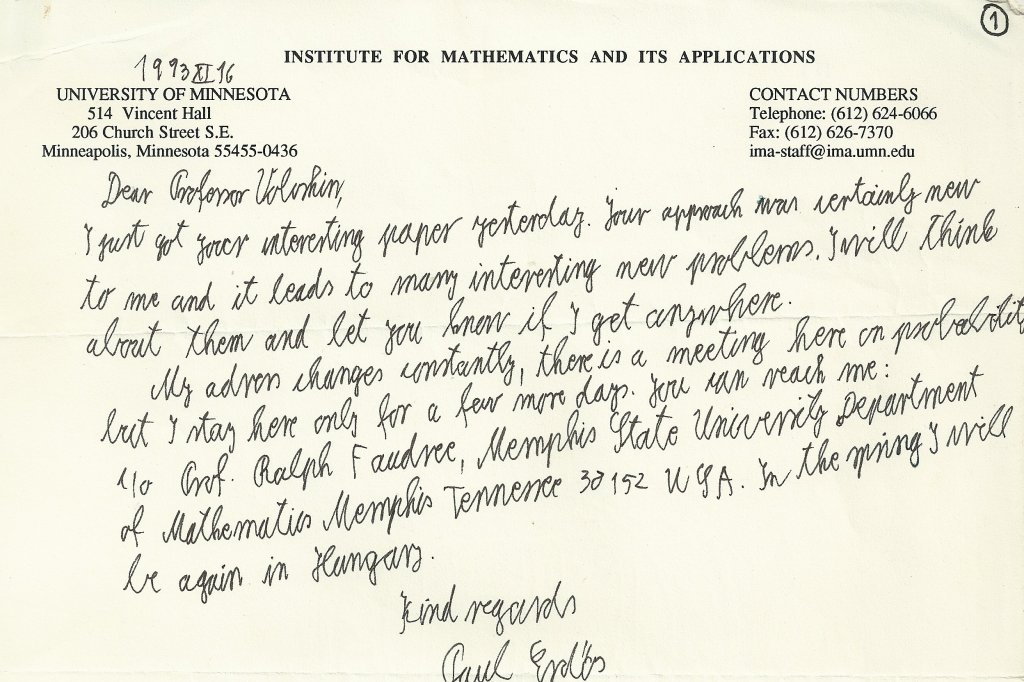 1
INSTITUTE FOR MATHEMATICS AND ITS APPLICATIONS
1993 XI 16
UNIVERSITY OF MINNESOTA
514 Vincent Hall
206 Church Street S.E.
Minneapolis, Minnesota 55455-0436
CONTACT NUMBERS
Telephone: (612) 624-6066
Fax: (612) 626-7370
ima-staff@ima.umn.edu
Dear Professor Voloshin,
I just got your interesting paper yesterday. Your approach was certainly new
to me and it leads to many interesting new problems. I will think
about them and let you know if I get anywhere.
My adress changes constantly, there is a meeting here on probability
but I stay here only for a few more days. You can reach me:
c/o Prof. Ralph Faudree, Memphis State University Department
of Mathematics Memphis Tennessee 38152 USA. In the spring I will
be again in Hungary.
Kind regards
Paul Erdős